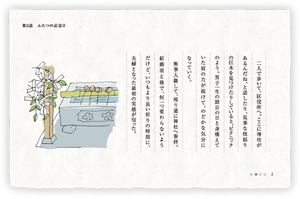 第2話　ふたつの記念日
二人で歩いて、区役所へ。ここに神社が
あるんだね、と話したり、見事な枝振り
の巨木を見つけたりしていると、ピクニック
のよう。男子一生の節目の日と身構えて
いた肩の力が抜けて、のどかな気分に
なっていく。
無事入籍して、帰り道に神社へ参拝。
結婚前と後で、何一つ変わらないよう
だけど、いつもより長い祈りの時間に、
夫婦となった最初の実感が宿った。
2